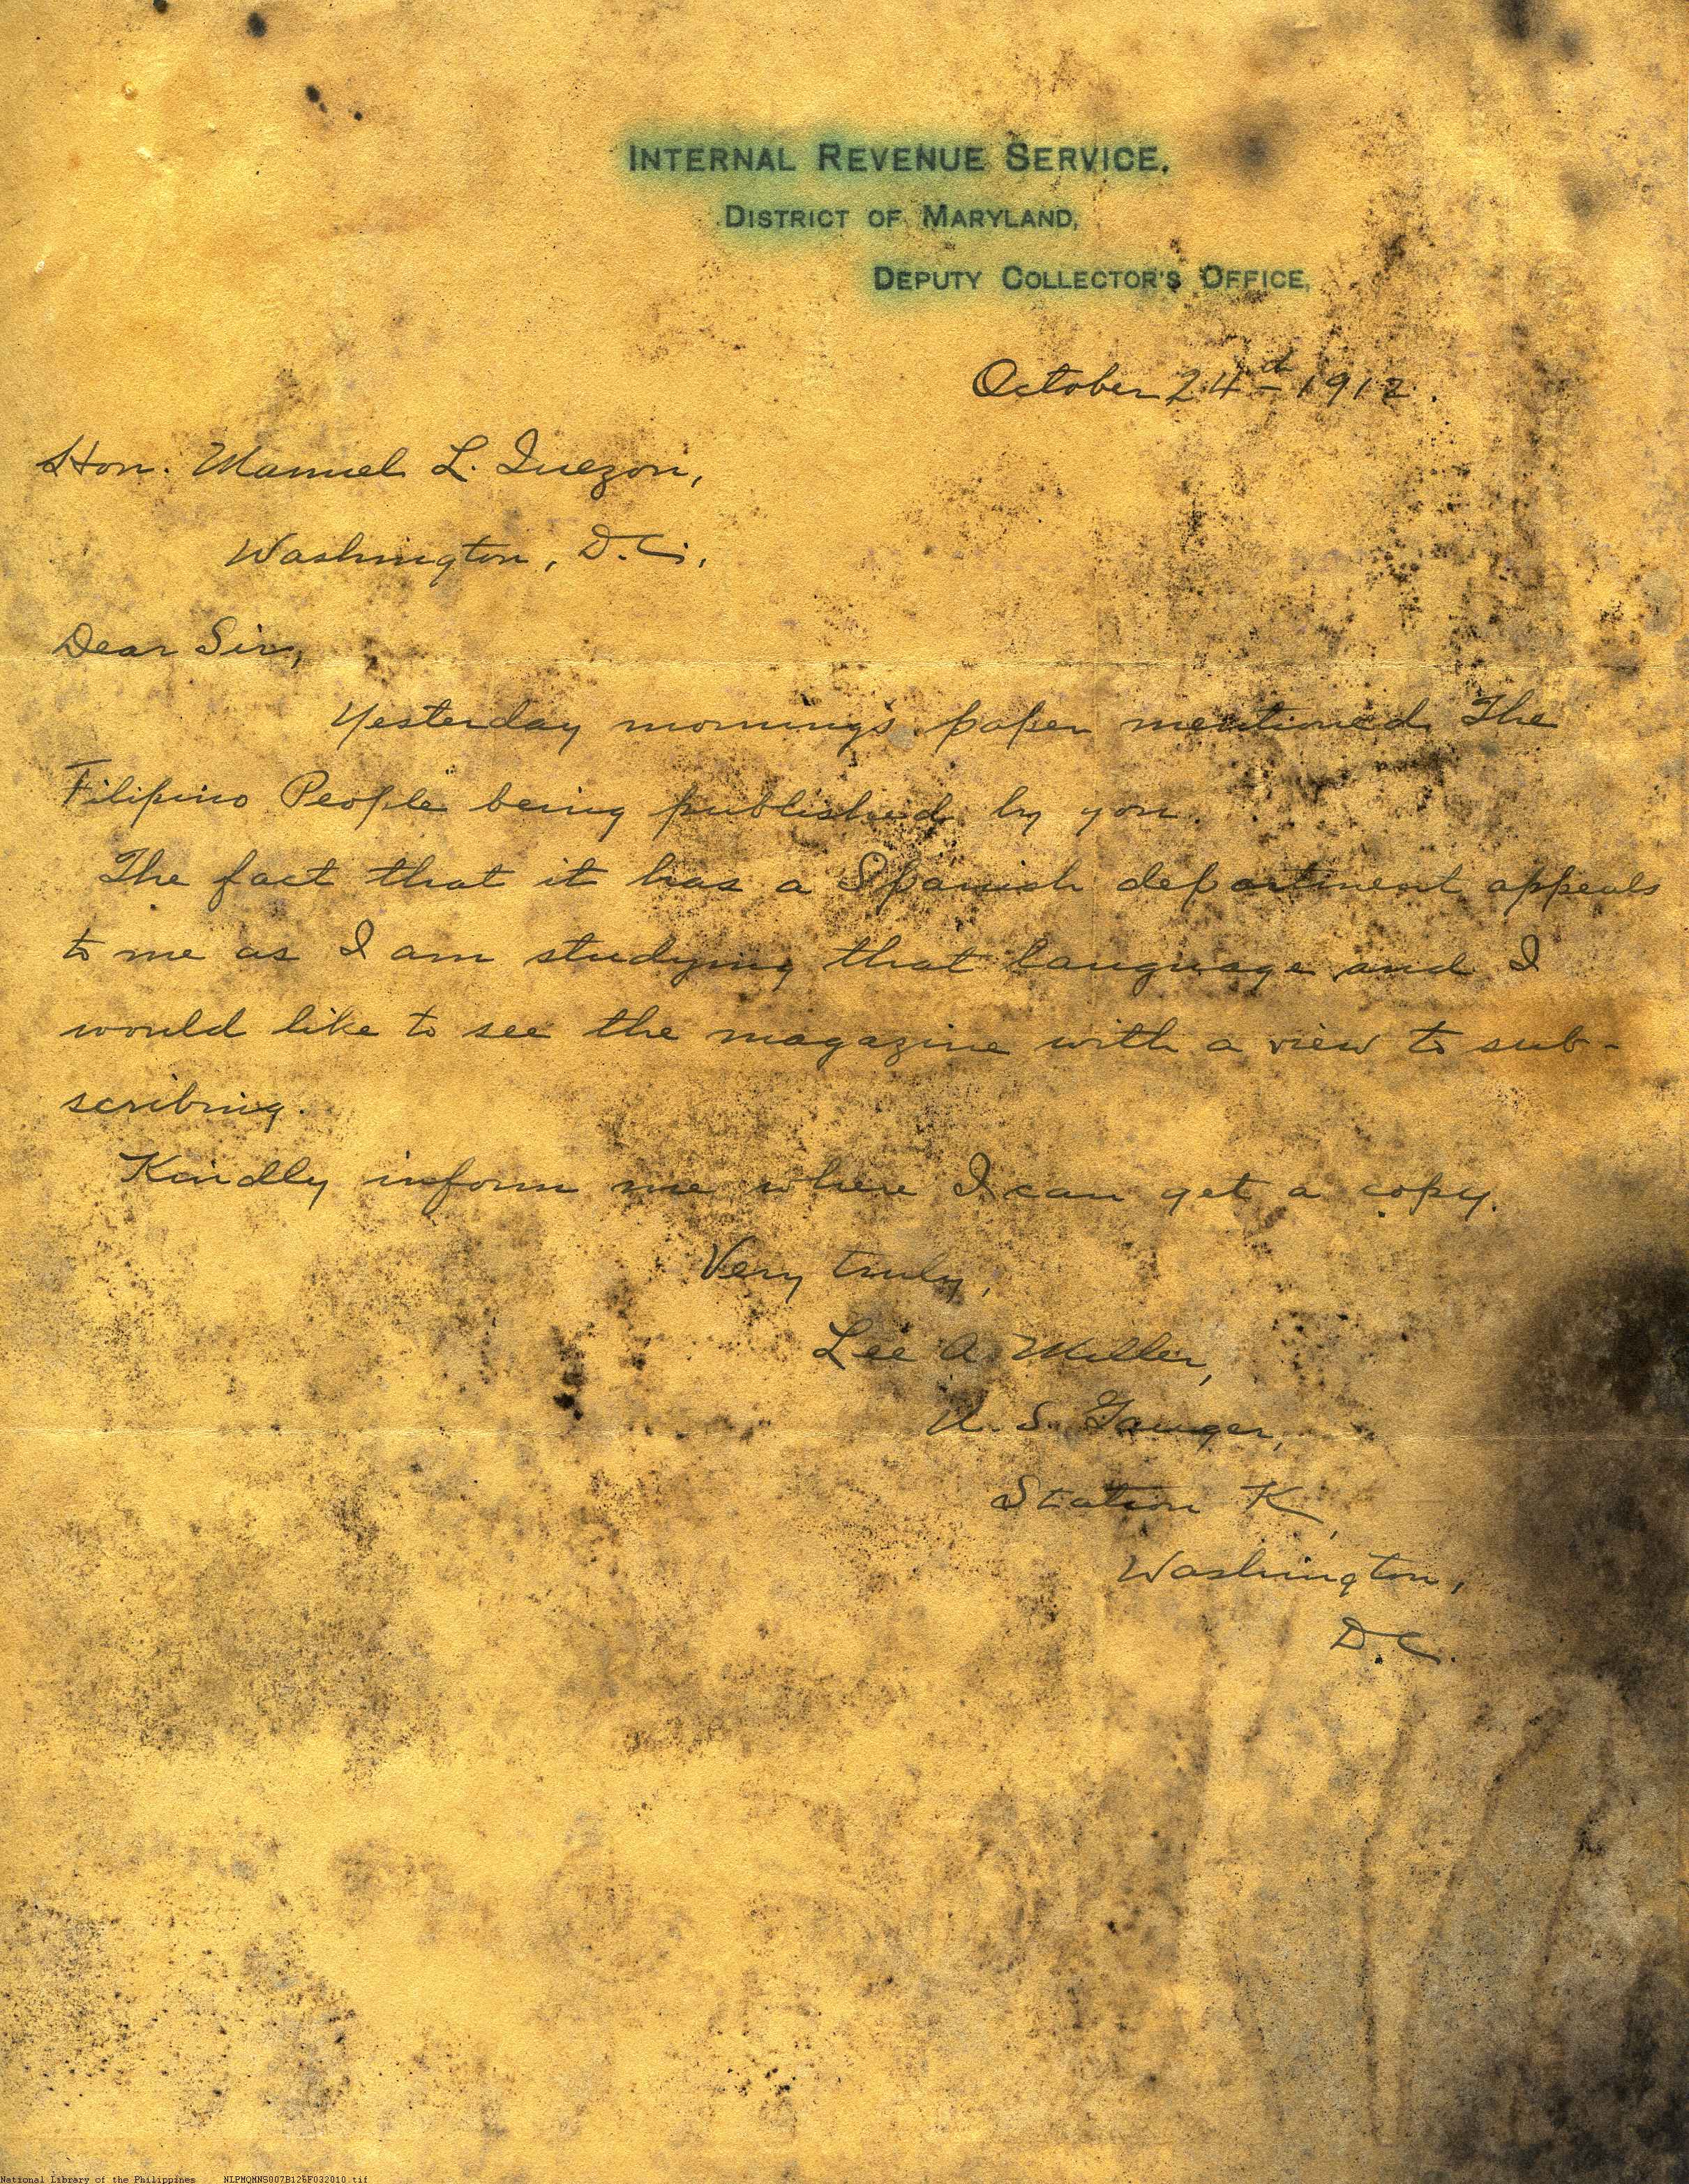 INTERNAL REVENUE SERVICE,
DISTRICT OF MARYLAND,
DEPUTY COLLECTOR'S OFFICE,
October 24th 1912.
Hon. Manuel L. Quezon,
Washington, D.C.,
Dear Sir,
Yesterday morning's paper mentioned The
Filipino People being published by you.
The fact that it has a Spanish department appeals
to me as I am studying that language and I
would like to see the magazine with a view to sub-
scribing.
Kindly inform me where I can get a copy.
Very truly,
Lee A. Miller,
U.S. Gauger,
Station K,
Washington,
D.C.
National Library of the Philippines NLPMQMNS007B126F032010.tif